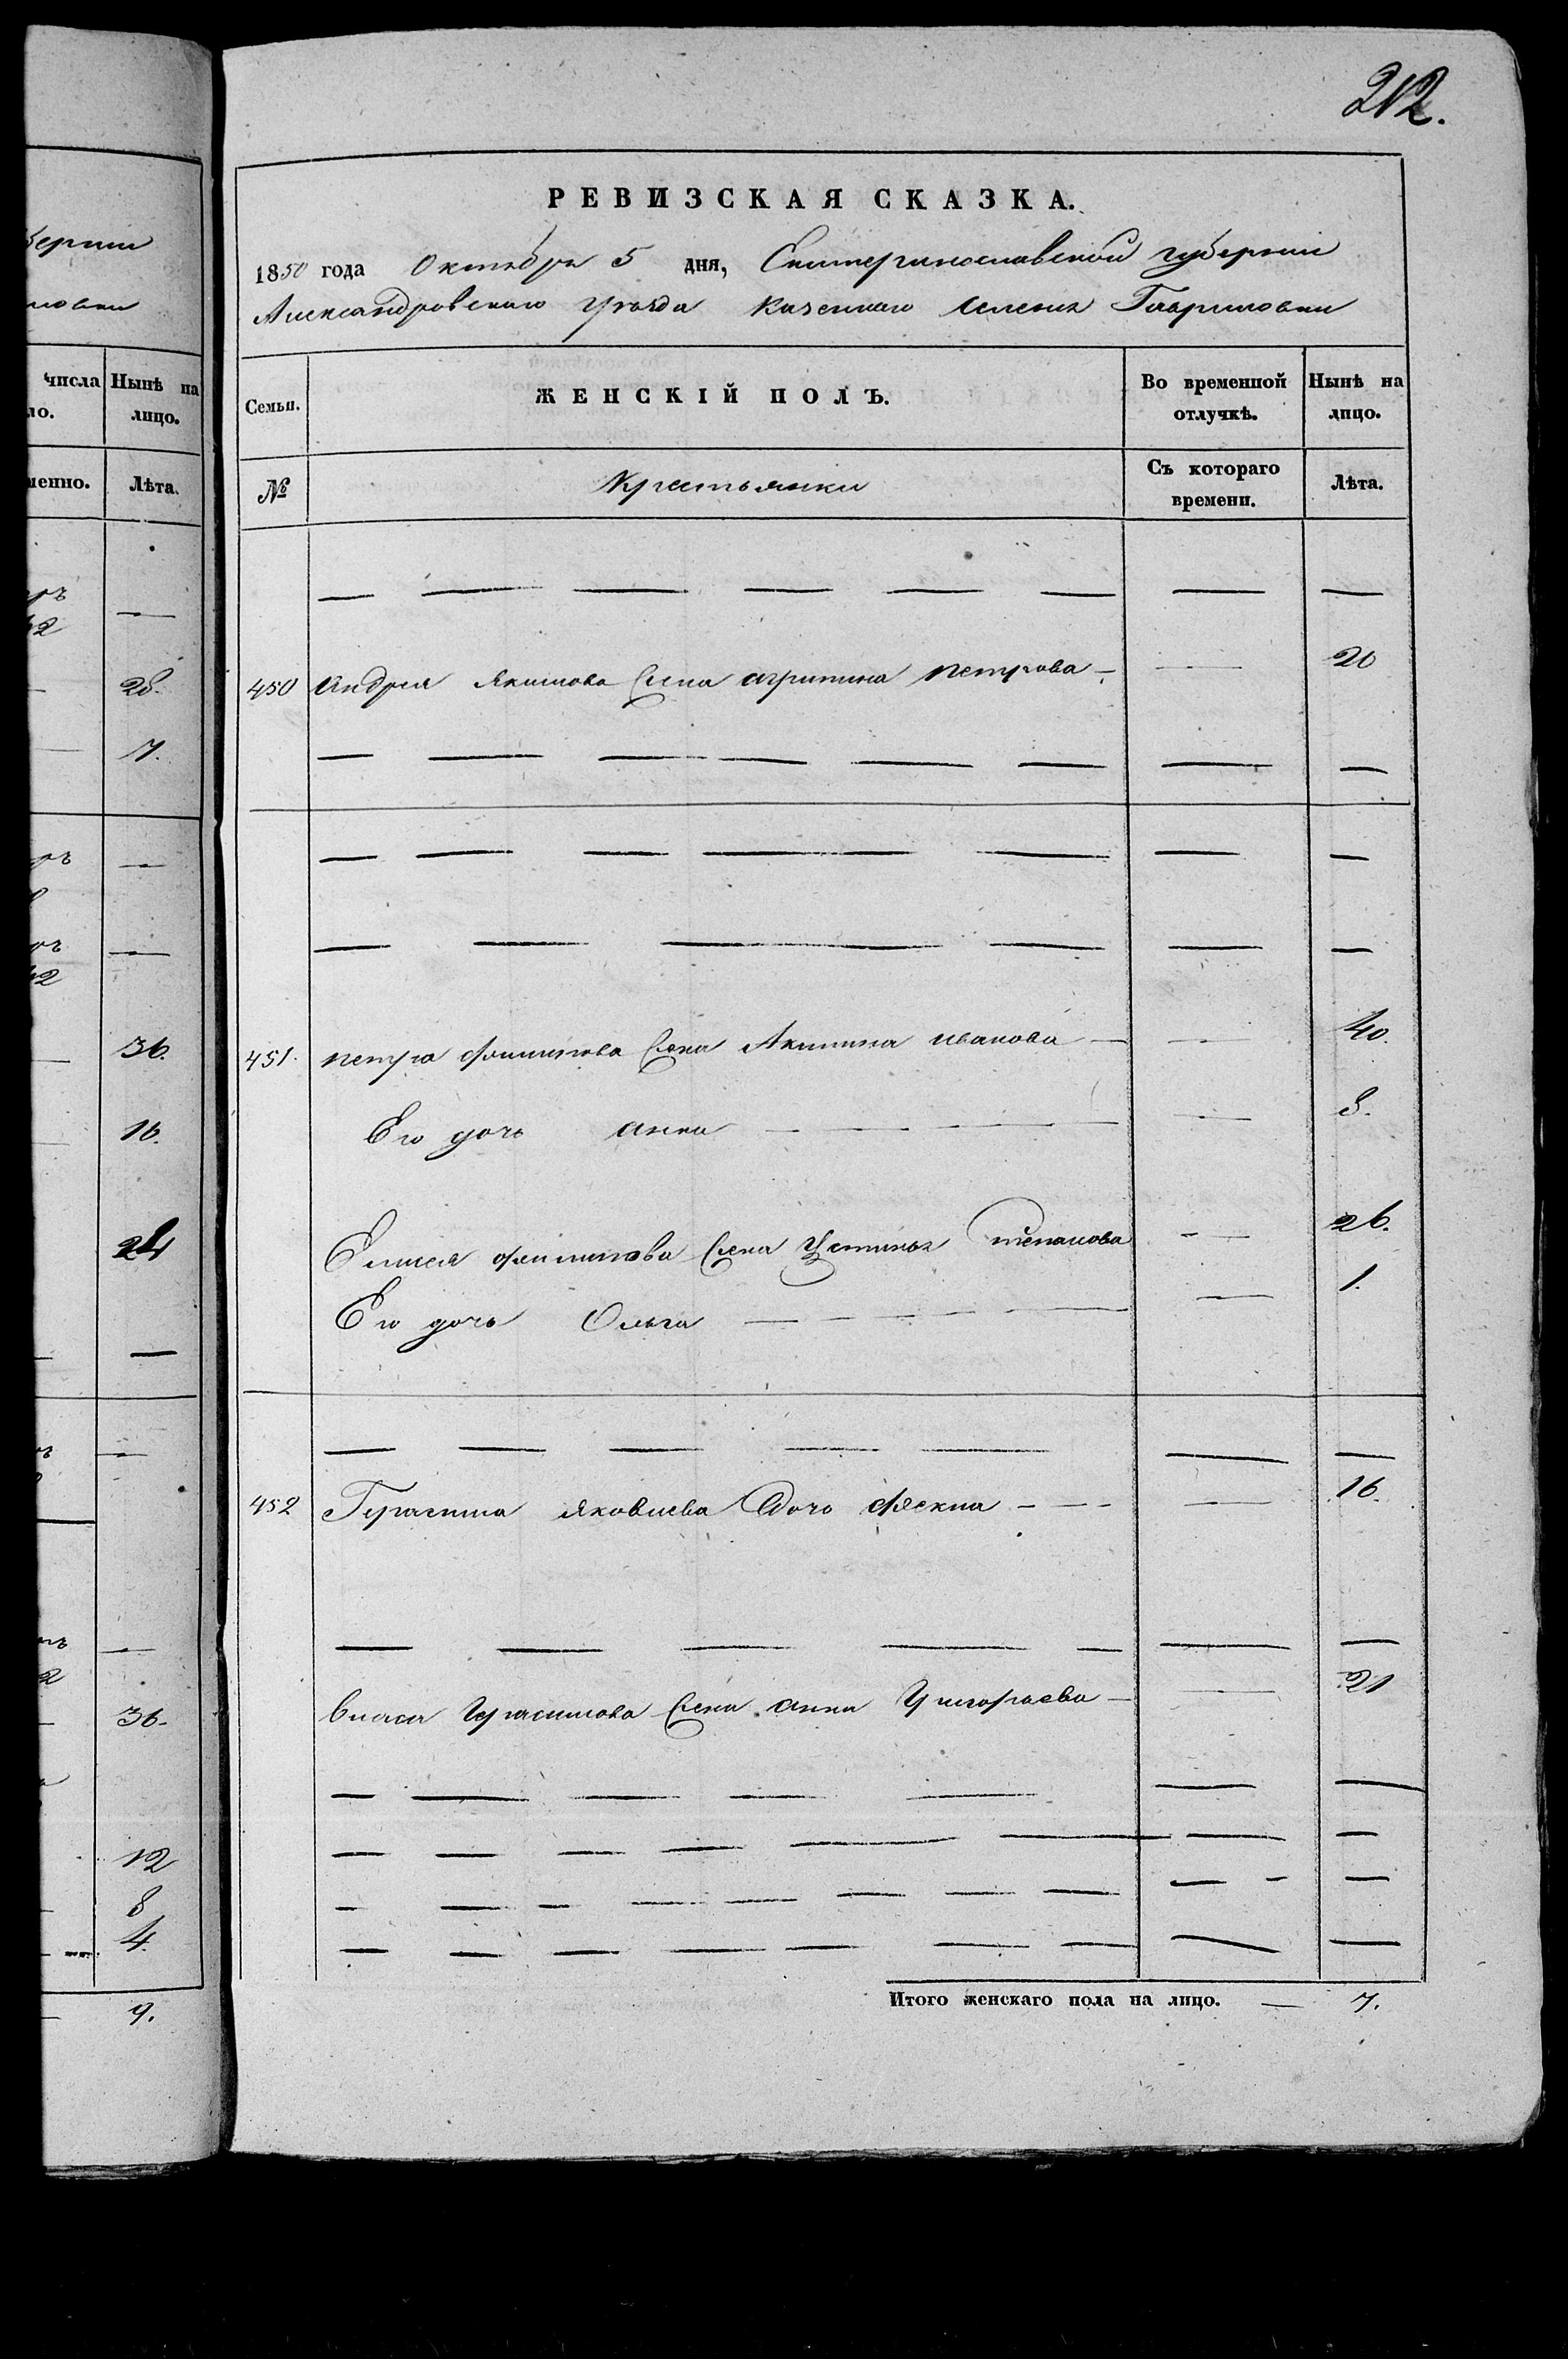 берніи
ловки
числа Нынѣ на
ло. лицо.
менно. Лѣта.
28.
7.
36.
16.
24
36.
12
8
4.
9.
212.
РЕВИЗСКАЯ СКАЗКА.
1850 года Октября 5 дня, Екатеринославской губерніи
Александровскаго уѣзда казеннаго селенія Гавриловки
Семьи. ЖЕНСКІЙ ПОЛЪ. Во временной отлучкѣ. Нынѣ на лицо.
№ Крестьянки Съ котораго времени. Лѣта.
450 Андрея Якимова жена агрипина петрова 20
451. петра филипова жена Акилина иванова 40.
Его дочь анна 8.
Елисея филипова жена Устинья степанова 26.
Его дочь Ольга 1.
452 Герасима яковлева дочь фекла 16.
власа Герасимова жена анна Григорьева 21
Итого женскаго пола на лицо. — 7.